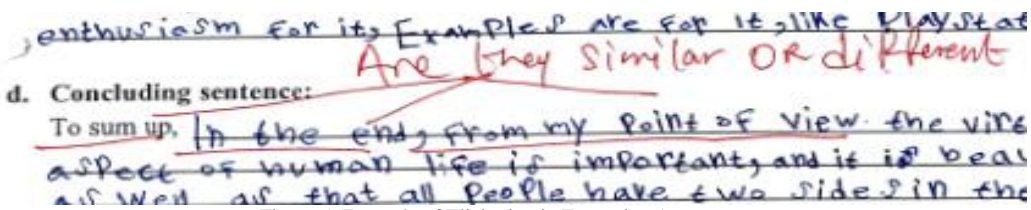 , enthusiasm for it, Examples are for it, like Playstat
Are they Similar OR different
d. Concluding sentence:
To sum up, In the end, from my point of view. the virt
aspect of human life is important, and it is beau
as well as that all People have two sides in the